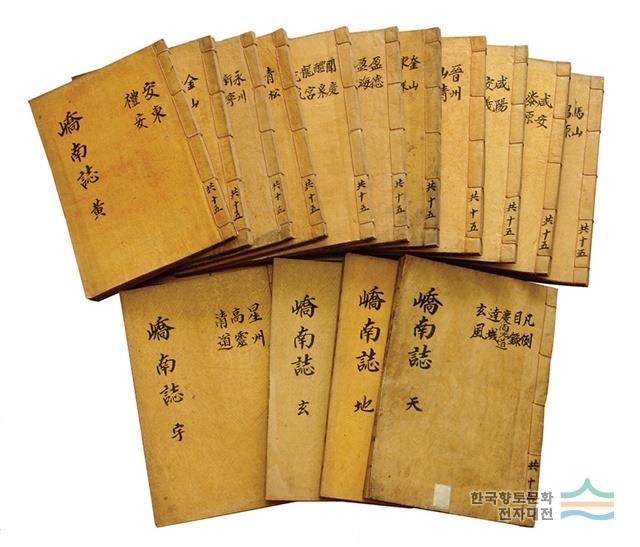 安東
禮安
嶠南誌 黃
金山
共十五
永川
新寧
共十五
靑松
共十五
聞慶
醴泉
龍宮
共十五
盈德
盈海
共十五
釜山
共十五
晉州
共十五
咸陽
共十五
咸安
漆原
共十五
馬山
共十五
星州
高靈
清道
嶠南誌 宇
嶠南誌 玄
嶠南誌 地
凡例
目錄
慶尙道
達城
玄風
嶠南誌 天
共十
한국향토문화
전자대전